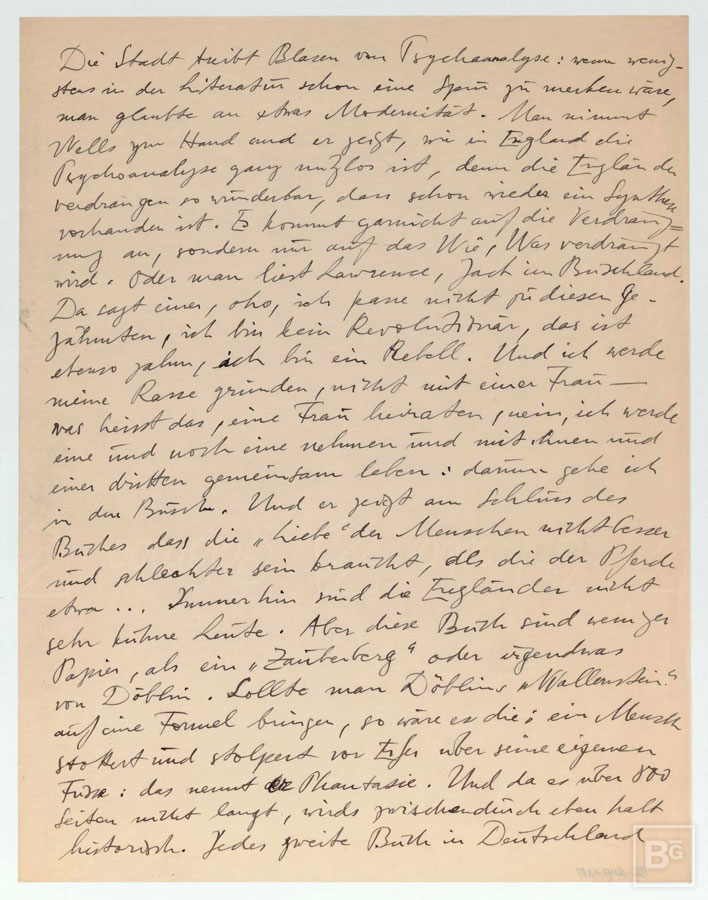 Die Stadt treibt Blasen von Psychoanalyse: wenn wenig-
stens in der Literatur schon eine Spur zu merken wäre,
man glaubte an etwas Modernität. Man nimmt
Wells zur Hand und er zeigt, wie in England die
Psychoanalyse ganz nutzlos ist, denn die Englän der
verdrängen so wunderbar, dass schon wieder ein Synthese
vorhanden ist. Es kommt garnicht auf die Verdräng=
ung an, sondern nur auf das Wie, Was verdrängt
wird. Oder man liest Lawrence, Jack im Buschland.
Da sagt einer, oho, ich passe nicht zu diesen Ge-
zähmten, ich bin kein Revolutionär, das ist
ebenso zahm, ich bin ein Rebell. Und ich werde
meine Rasse gründen, nicht mit einer Frau —
was heisst das, eine Frau heiraten, nein, ich werde
eine und noch eine nehmen und mit ihnen und
einer dritten gemeinsam leben: darum gehe ich
in den Busch. Und er zeigt am Schluss des
Buches dass die „Liebe" der Menschen nicht besser
und schlechter sein braucht, als die der Pferde
etwa ... Immerhin sind die Engländer nicht
sehr kühne Leute. Aber diese Buch sind weniger
Papier, als ein „Zauberberg" oder irgendwas
von Döblin. Sollte man Döblins „Wallenstein"
auf eine Formel bringen, so wäre es die: ein Mensch
stottert und stolpert vor Eifer über seine eigenen
Füsse: das nennt er Phantasie. Und da es über 800
Seiten nicht langt, wirds zwischendurch eben halt
historisch. Jedes zweite Buch in Deutschland
BG